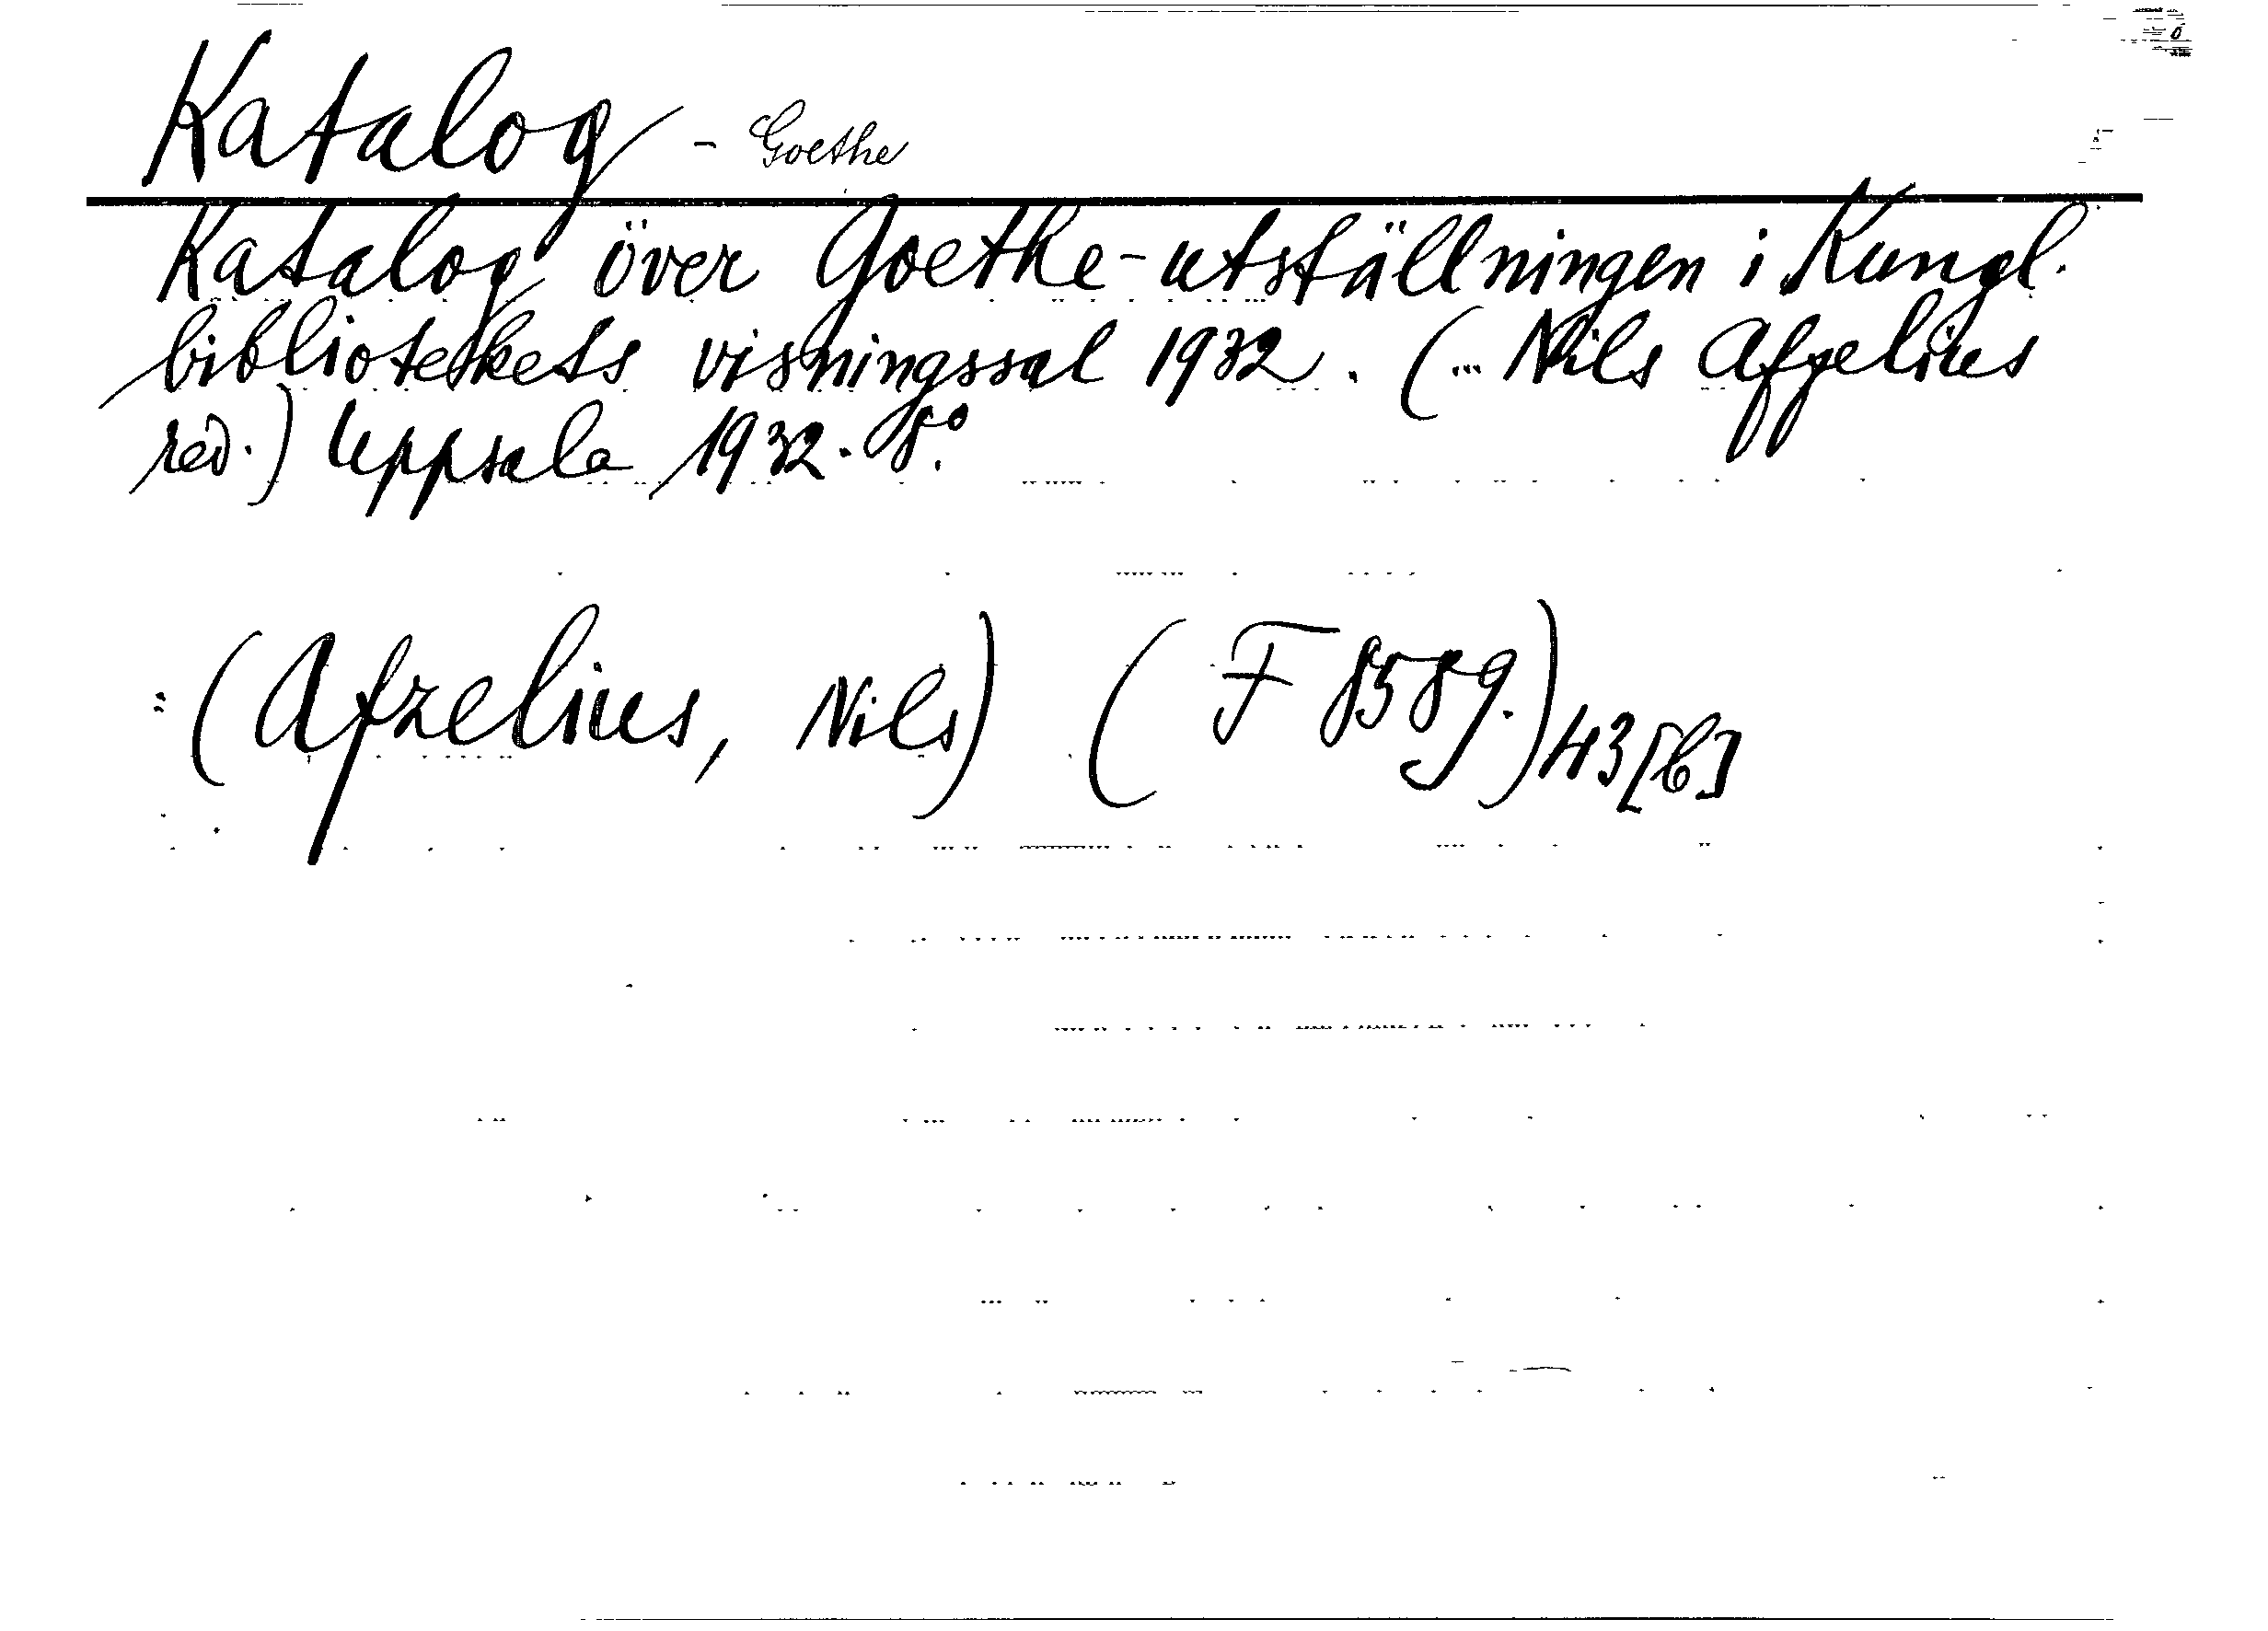 Katalog - Goethe
Katalog över Goethe-utställningen i Kungl.
bibliotekets visningssal 1932. (... Nils Afzelius
red.) Uppsala 1932. 8:o
(Afzelius, Nils) (F 858 g.) 43[b]